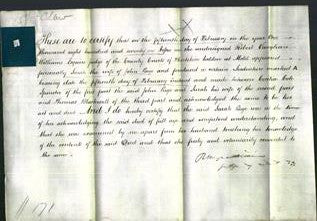 These are to certify that on the fifteenth day of February in the year One
thousand eight hundred and seventy in before me the undersigned Robert Vaughan
Williams Esquire Judge of the County Court of holden at Mold appeared
personally Sarah the wife of John Page and produced a certain Indenture marked A
bearing date the fifteenth day of February instant and made between
of the first part the said John Page and Sarah his wife of the second part
and Thomas of the third part and acknowledged the same to be her
act and deed And I do hereby certify that the said Sarah Page was at the time
of her acknowledging the said deed of full age and competent understanding, and
that she was examined by me apart from her husband touching her knowledge
of the contents of the said Deed and that she freely and voluntarily consented to
the same